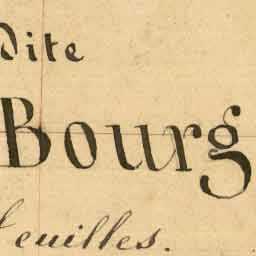 dite
Bourg
feuilles.